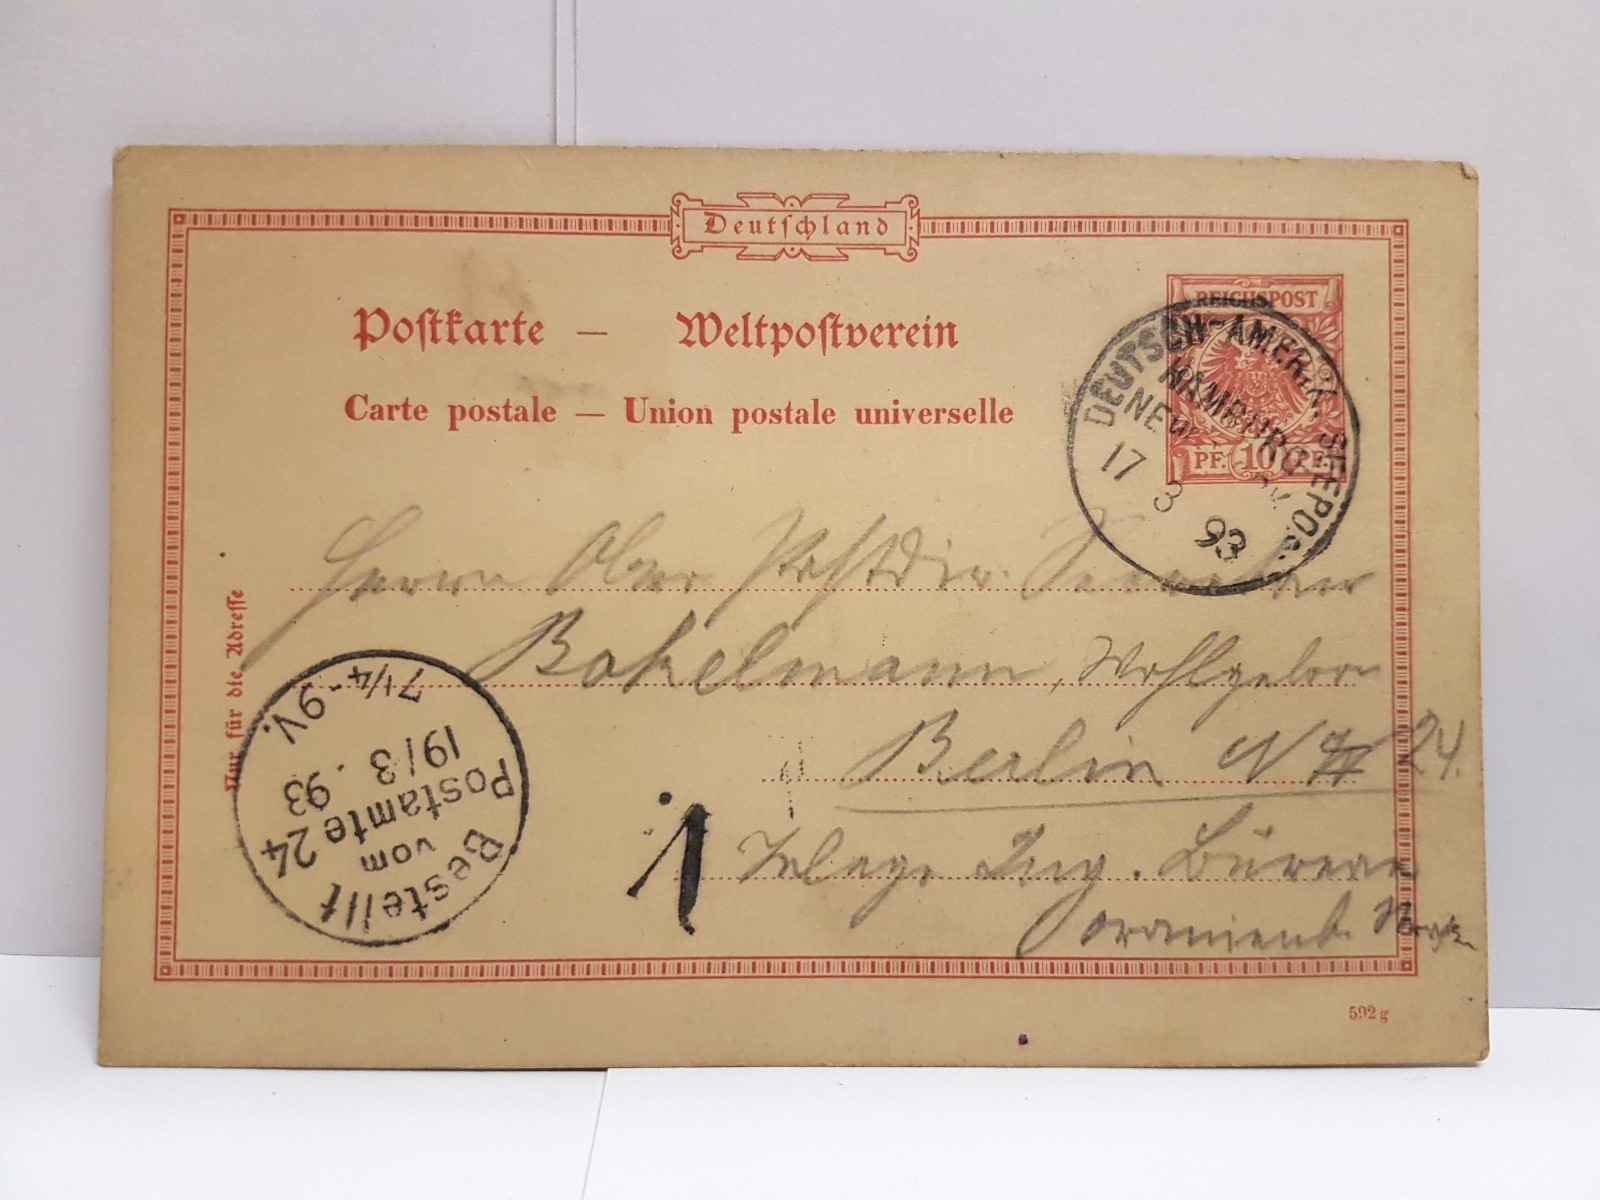 Deutschland
Postkarte — Weltpostverein
Carte postale — Union postale universelle
REICHSPOST
PF. 10 PF.
DEUTSCH-AMERIK. SEEPOST
HAMBURG
NEW
17 3 93
Herrn Ober Postdir.
Bakelmann, Wohlgeboren
Berlin N 24.
1
Ing. Büreau
Oranienb.
Nur für die Adresse
Bestellt
vom
Postamte 24
19/3. 93
7 1/4-9V.
592 g